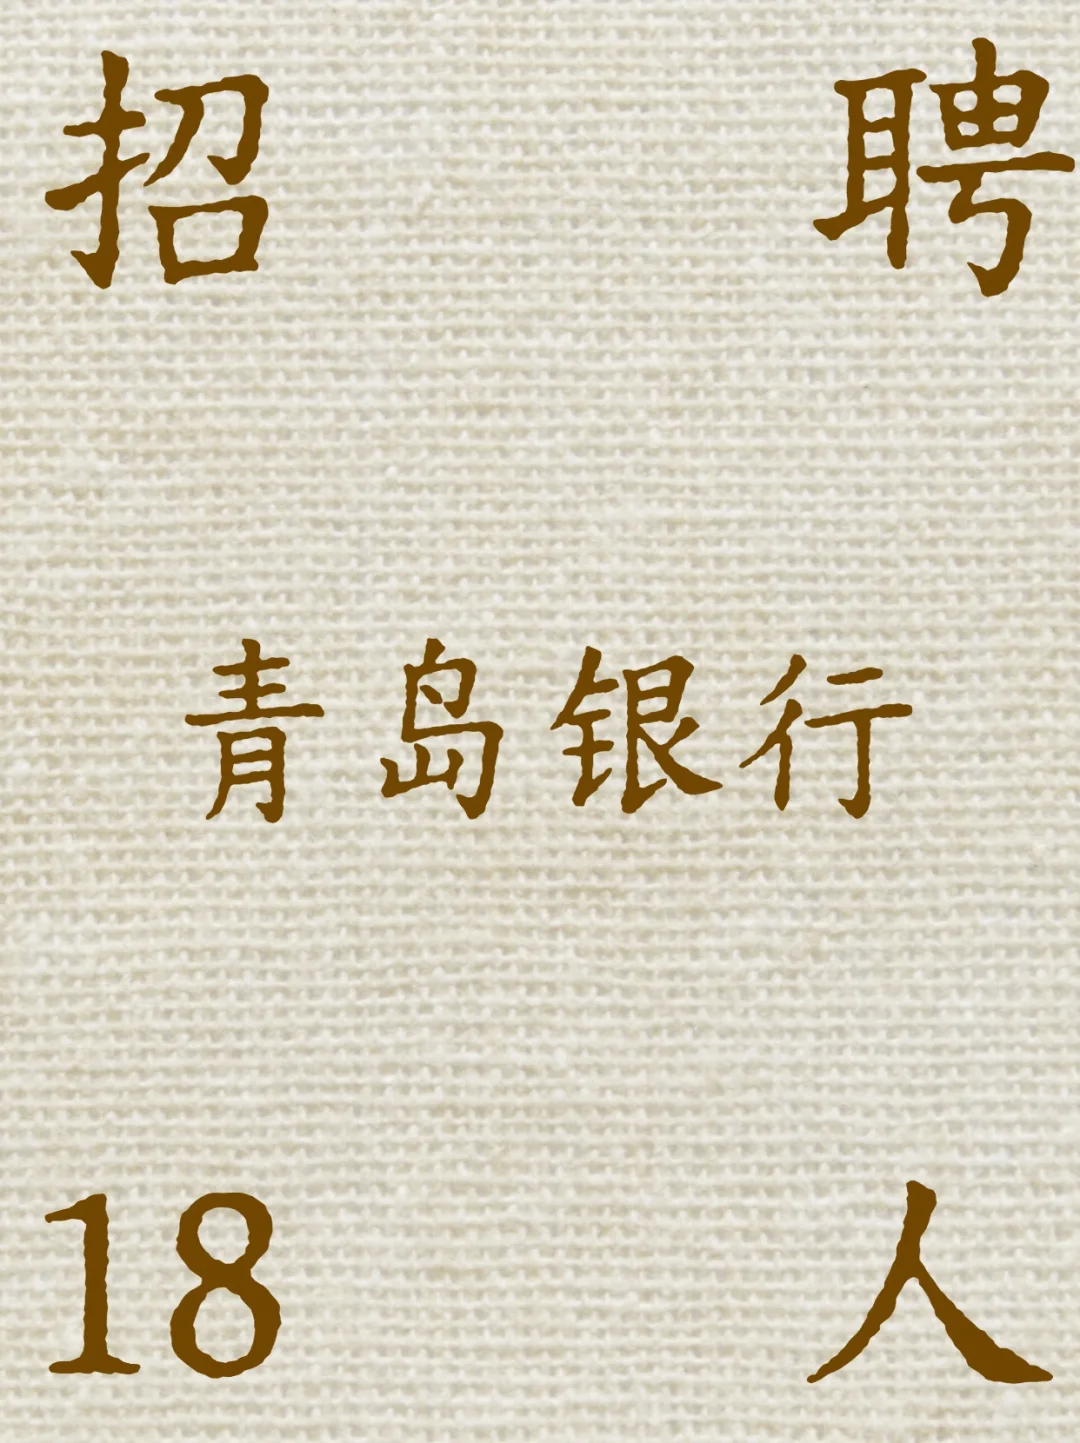 招聘
青岛银行
18人